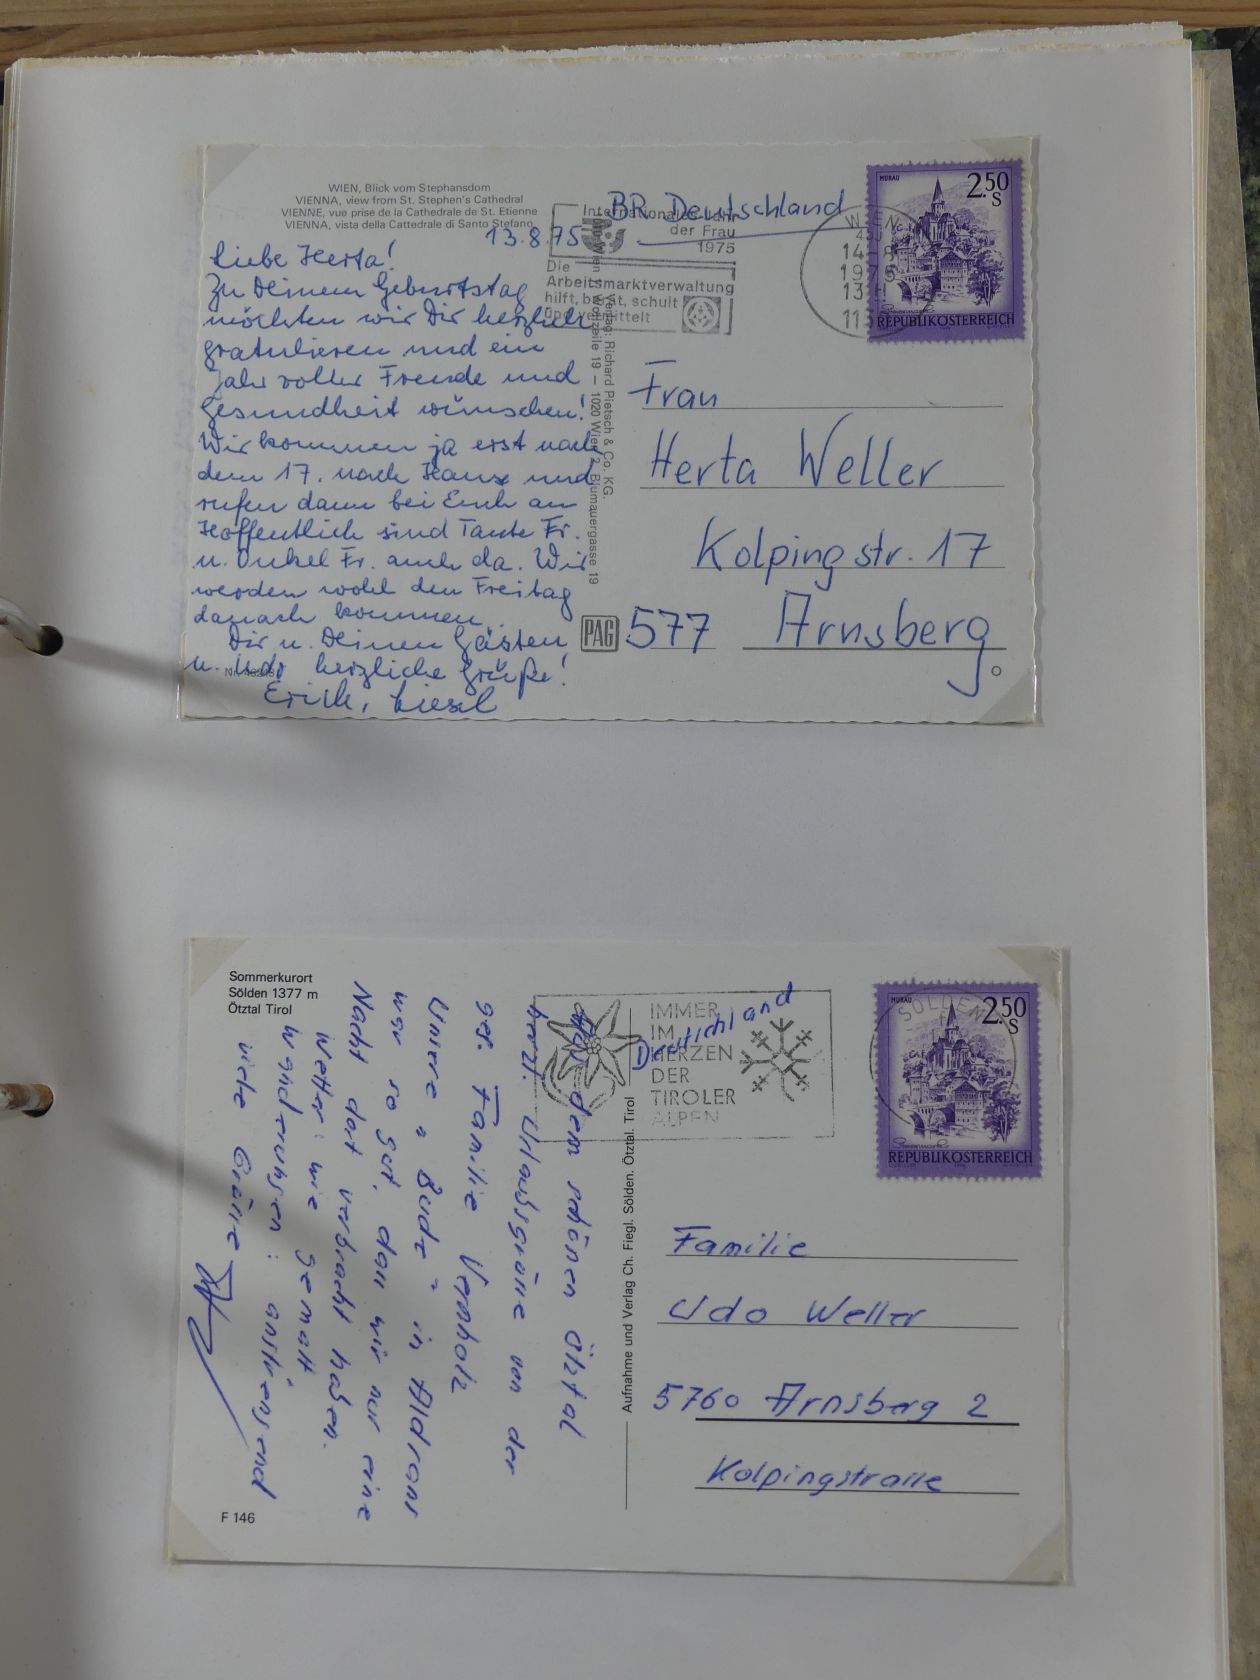 WIEN, Blick vom Stephansdom
VIENNA, view from St. Stephen's Cathedral
VIENNE, vue prise de la Cathedrale de St. Etienne
VIENNA, vista della Cattedrale di Santo Stefano
13.8.75
Liebe Herta!
Zu Deinem Geburtstag
möchten wir Dir herzlich
gratulieren und ein
Jahr voller Freude und
Gesundheit wünschen!
Wir kommen ja erst nach
dem 17. nach Haus und
rufen dann bei Euch an
Hoffentlich sind Tante Fr.
u. Onkel Fr. auch da. Wir
werden wohl den Freitag
danach kommen.
Dir u. Deinen Gästen
u. Udo herzliche Grüße!
Erich, Liesel
Nr.
BR Deutschland
Internationales Jahr
der Frau
1975
Die
Arbeitsmarktverwaltung
hilft, berät, schult
und vermittelt
WIEN
14.-8.
1975
13
115
MURAU
2.50
S
REPUBLIK ÖSTERREICH
Verlag: Richard Pietsch & Co. KG.
Wien 1, Wollzeile 19 — 1020 Wien 2, Blumauergasse 19
PAG
Frau
Herta Weller
Kolpingstr. 17
577 Arnsberg
Sommerkurort
Sölden 1377 m
Ötztal Tirol
Aus dem schönen Ötztal
herzl. Urlaubsgrüße von der
ges. Familie Vernholz
Unsere "Bude" in Aldrans
war so gut, dan wir nur eine
Nacht dort verbracht haben.
Wetter: wie gemalt
Wanderungen: anstrengend
viele Grüße
F 146
Deutschland
IMMER
IM
HERZEN
DER
TIROLER
ALPEN
SÖLDEN
MURAU
2.50
S
REPUBLIK ÖSTERREICH
Aufnahme und Verlag Ch. Fiegl. Sölden. Ötztal. Tirol
Familie
Udo Weller
5760 Arnsberg 2
Kolpingstraße